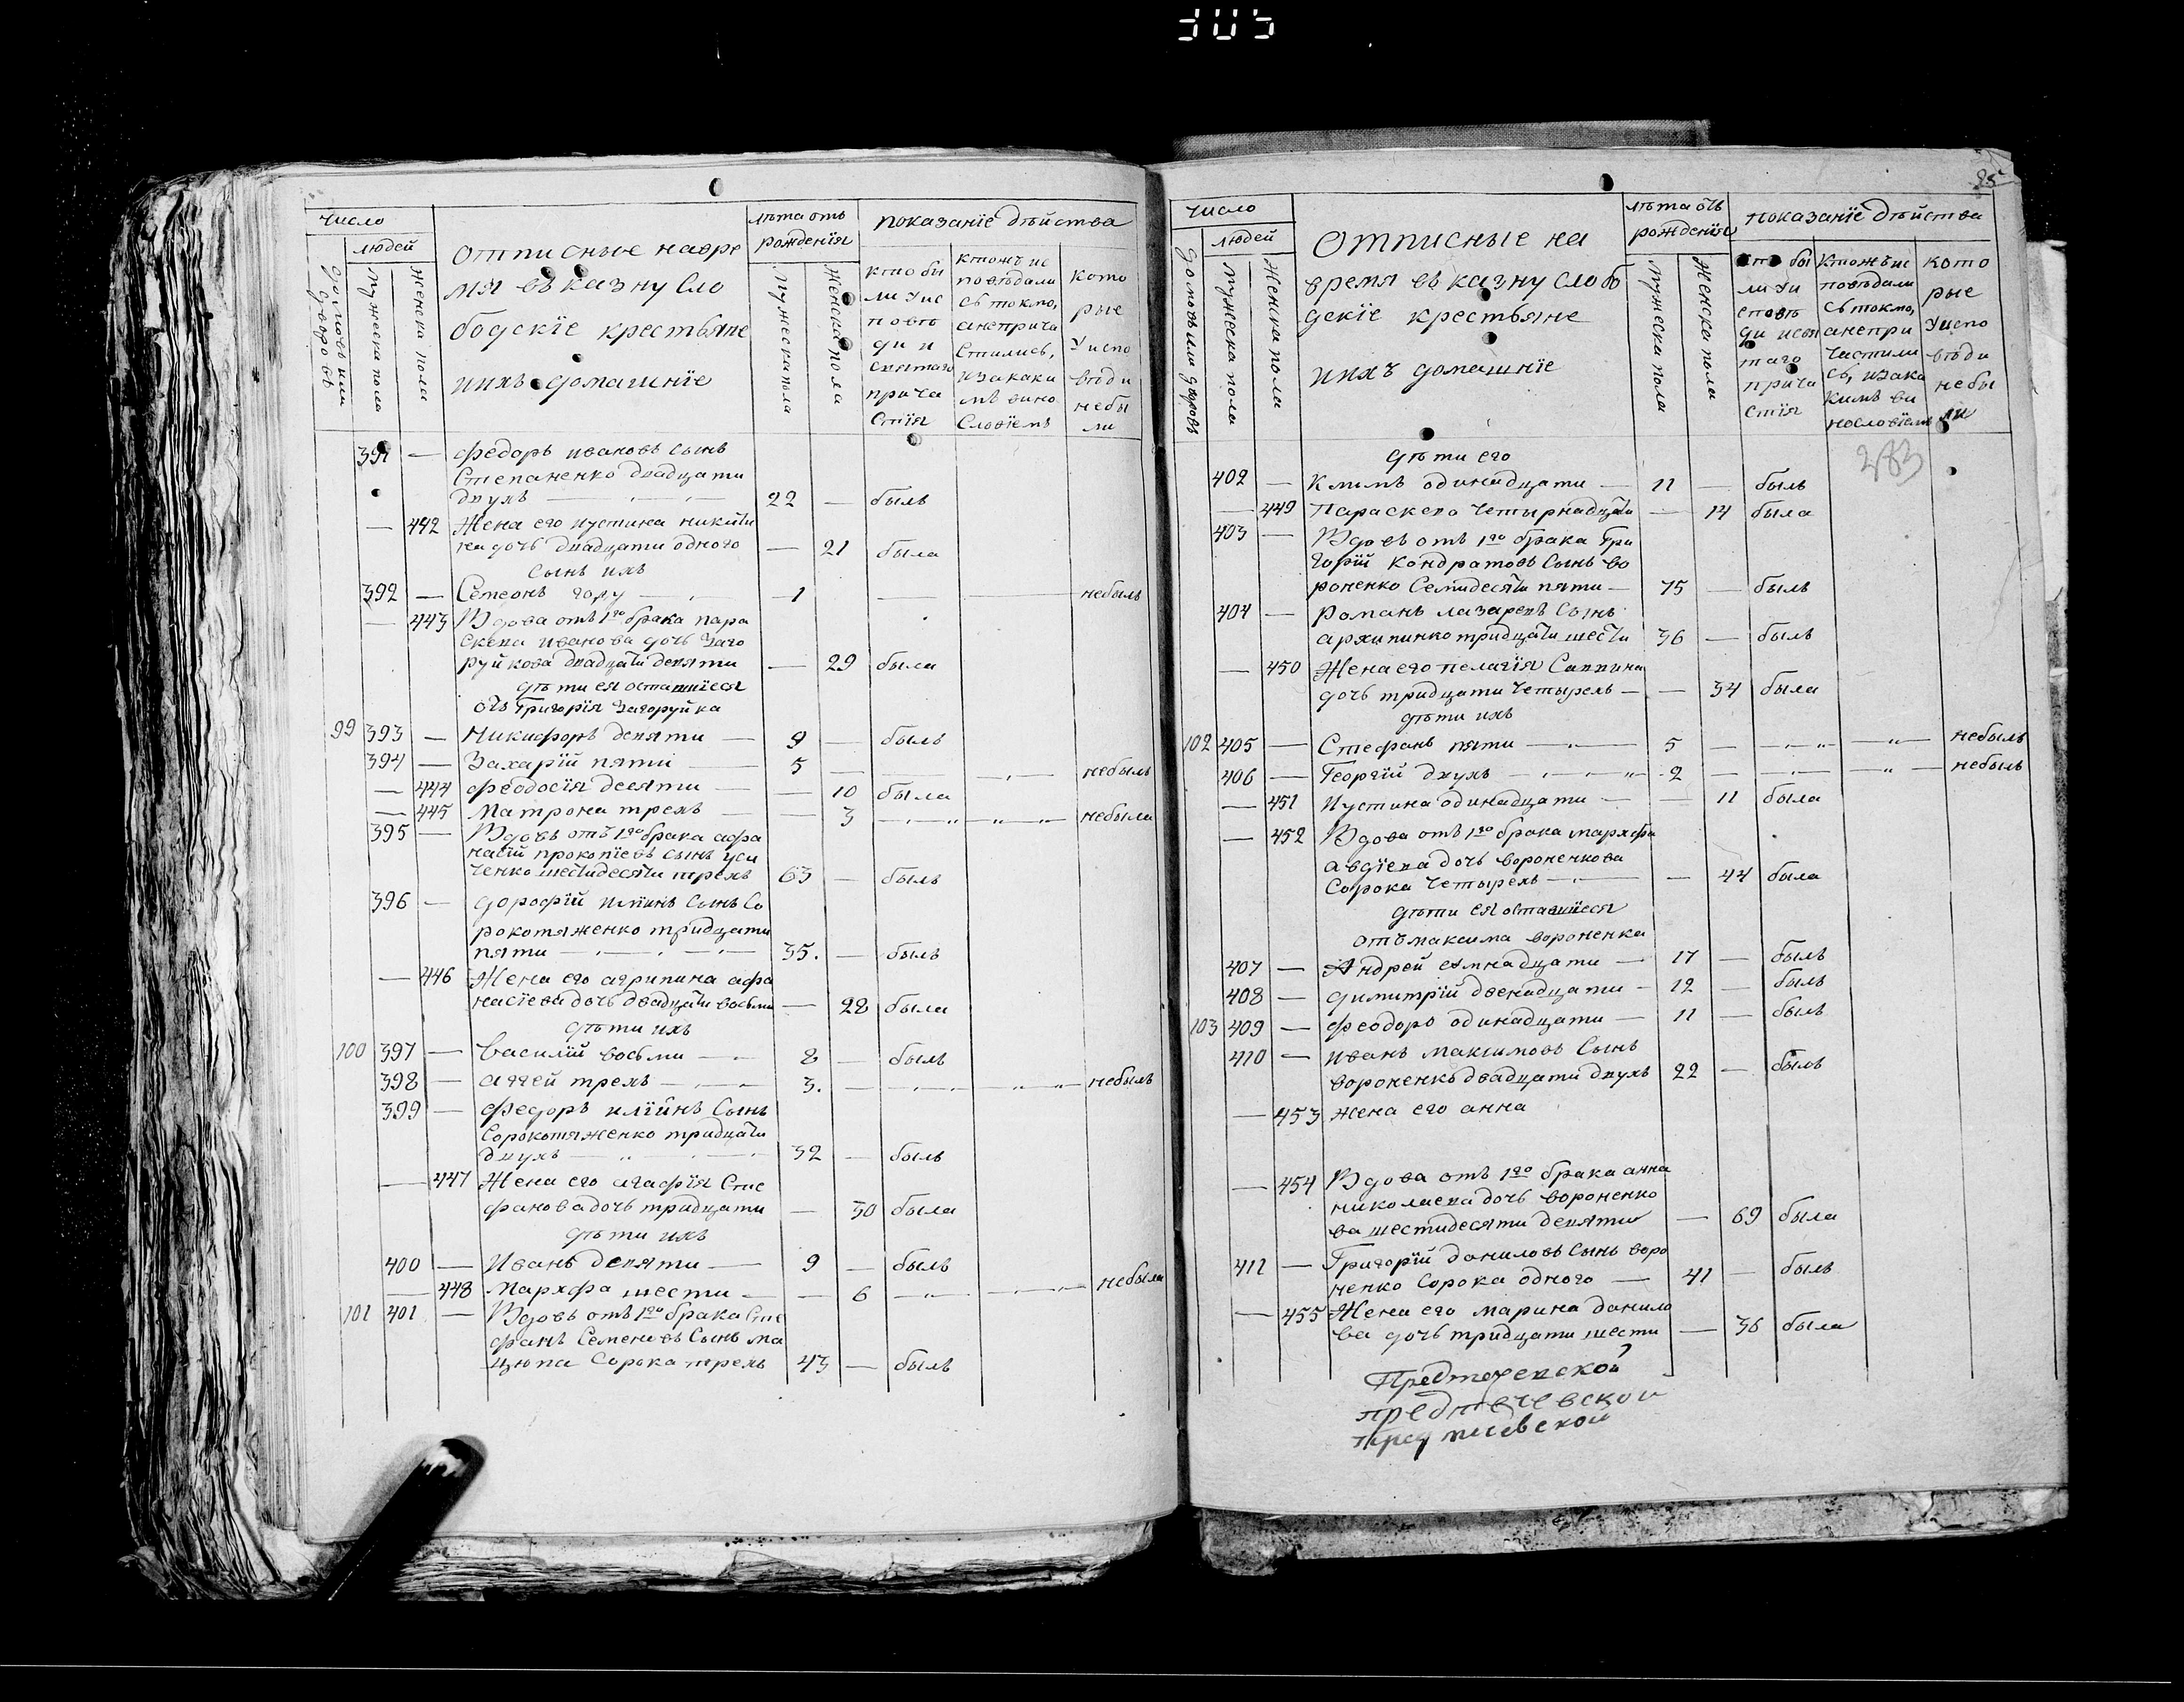 305
число
людей
домовыми дворовъ
мужеска пола
женска пола
отписные навре
мя въ казну сло
бодскїе крестьяне
ихъ домашнїе
лѣта отъ
рожденїя
мужеска пола
женска пола
показанїе дѣйства
кто бы
ли у ис
повѣ
ди и
святаго
прича
стїя
ктожъ ис
повѣдали
сь токмо,
анеприча
стились,
изакаки
мъ вино
словїемъ
кото
рые
у испо
вѣди
небы
ли
391 — федоръ ивановъ сынъ
степаненко двадцати
двухъ — 22 — былъ
— 442 Жена его иустина никити
на дочь двадцати одного — 21 была
сынъ ихъ
392 — Семеонъ году — 1 — — небылъ
— 443 Вдова отъ 1го брака пара
скева иванова дочь заго
руйкова двадцати девяти — 29 была
дѣти ея оставшїеся
отъ Григорїя Загоруйка
99 393 — Никифоръ девяти — 9 — былъ
394 — Захарїй пяти — 5 — — небылъ
— 444 феодосїя десяти — — 10 была
— 445 Матрона трехъ — 3 — — небыла
395 — Вдовъ отъ 1го брака афа
насїй прокопїевъ сынъ уси
ченко шестидесяти трехъ 63 — былъ
396 — дорофїй илїинъ сынъ со
рокотяженко тридцати
пяти — 35. — былъ
— 446 Жена его агрипина афа
насїева дочь двадцати восьми — 28 была
дѣти ихъ
100 397 — василїй восьми — 8 — былъ
398 — аггей трехъ — 3. — — небылъ
399 — федоръ илїинъ сынъ
сорокотяженко тридцати
двухъ — 32 — былъ
— 447 Жена его агафїя сте
фанова дочь тридцати — 30 была
дѣти ихъ
400 — Иванъ девяти — 9 — былъ
— 448 Мархфа шести — — 6 — — небыла
101 401 — Вдовъ отъ 1го брака сте
фанъ семеновъ сынъ ма
цюпа сорока трехъ 43 — былъ
25
число
людей
домовыми дворовъ
мужеска пола
женска пола
Отписные на
время въ казну слобо
дскїе крестьяне
ихъ домашнїе
лѣта отъ
рожденїя
мужеска пола
женска пола
показанїе дѣйства
кто бы
ли у и
сповѣ
ди исвя
таго
прича
стїя
ктожъ ис
повѣдали
сь токмо,
анепри
частили
сь, изака
кимъ ви
нословїемъ
кото
рые
у испо
вѣди
небы
ли
283
дѣти его
402 — Климъ одинадцати — 11 — былъ
— 449 Параскева четырнадцати — 14 была
403 — Вдовъ отъ 1го брака гри
горїй кондратовъ сынъ во
роненко семидесяти пяти — 75 — былъ
404 — романъ лазаревъ сынъ
архипинко тридцати шести 36 — былъ
— 450 Жена его пелагїя саввина
дочь тридцати четырехъ — — 34 была
дѣти ихъ
102 405 — Стефанъ пяти — 5 — — — небылъ
406 — Георгїй двухъ — 2 — — — небылъ
— 451 Иустина одинадцати — — 11 была
— 452 Вдова отъ 1го брака мархфа
авдїева дочь вороненкова
сорока четырехъ — — 44 была
дѣти ея оставшїеся
отъ максима вороненка
407 — Андрей семнадцати — 17 — былъ
408 — димитрїй двенадцати — 12 — былъ
103 409 — феодоръ одинадцати — 11 — былъ
410 — иванъ максимовъ сынъ
вороненко двадцати двухъ 22 — былъ
— 453 жена его анна
— 454 Вдова отъ 1го брака анна
николаева дочь вороненко
ва шестидесяти девяти — 69 была
411 — Григорїй даниловъ сынъ воро
ненко сорока одного — 41 — былъ
— 455 Жена его марина данило
ва дочь тридцати шести — 36 была